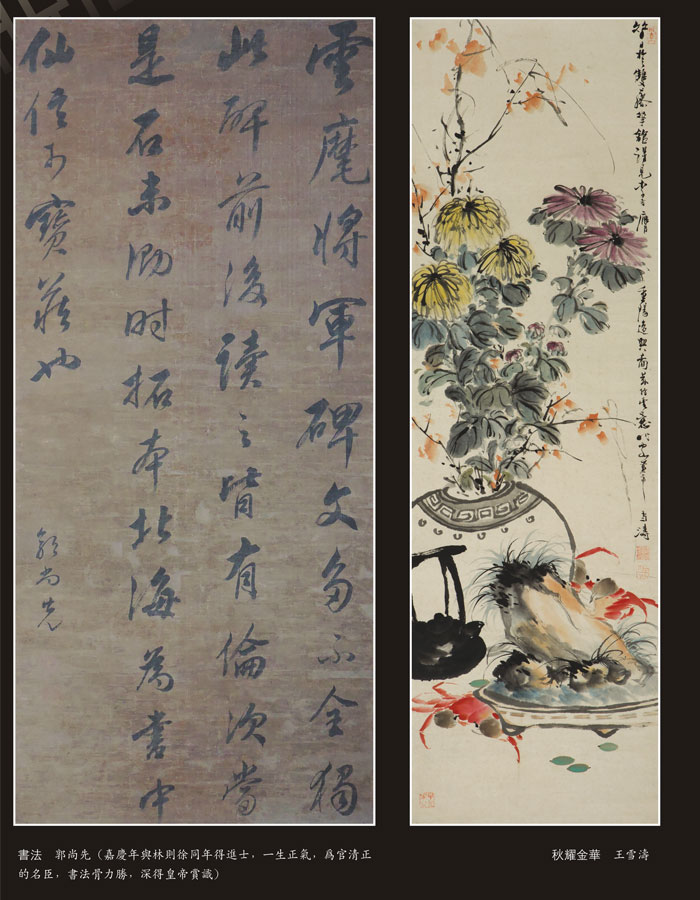 雲麾將軍碑文多不全獨
此前後讀之皆有倫次當
是石未泐時拓本北海為書中
仙信可寶藏也
郭尚先
重陽遣興 雪濤
書法　郭尚先（嘉慶年與林則徐同年得進士，一生正氣，爲官清正
的名臣，書法骨力勝，深得皇帝賞識）
秋耀金華　王雪濤